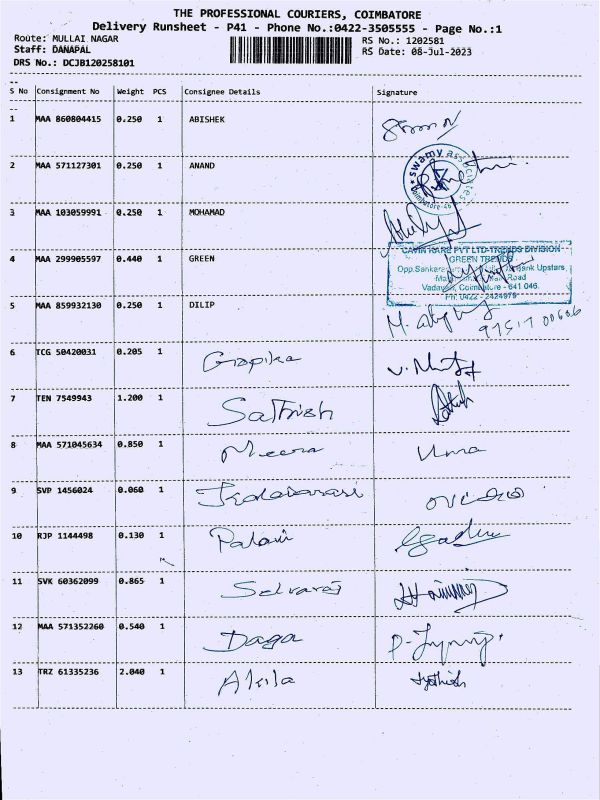 THE PROFESSIONAL COURIERS, COIMBATORE
Delivery Runsheet - P41 - Phone No.:0422-3505555 - Page No.:1
Route: MULLAI NAGAR RS No.: 1202581
Staff: DANAPAL RS Date: 08-Jul-2023
DRS No.: DCJB120258101
S No Consignment No Weight PCS Consignee Details Signature
1 MAA 860804415 0.250 1 ABISHEK
2 MAA 571127301 0.250 1 ANAND
swamy associates
Coimbatore-46
3 MAA 103059991 0.250 1 MOHAMAD
4 MAA 299905597 0.440 1 GREEN
CAVIN KARE PVT LTD-TRENDS DIVISION
GREEN TRENDS
Bank Upstairs
Road
Vadavalli, Coimbatore - 641 046.
Ph: 0422 - 2424979
5 MAA 859932130 0.250 1 DILIP
97517 00606
6 TCG 50420031 0.205 1 Gopika
7 TEN 7549943 1.200 1 Sathish
8 MAA 571045634 0.850 1 Meena Uma
9 SVP 1456024 0.060 1
10 RJP 1144498 0.130 1 Palani
11 SVK 60362099 0.865 1 Selvaraj
12 MAA 571352260 0.540 1 Daga
13 TRZ 61335236 2.040 1 Akila